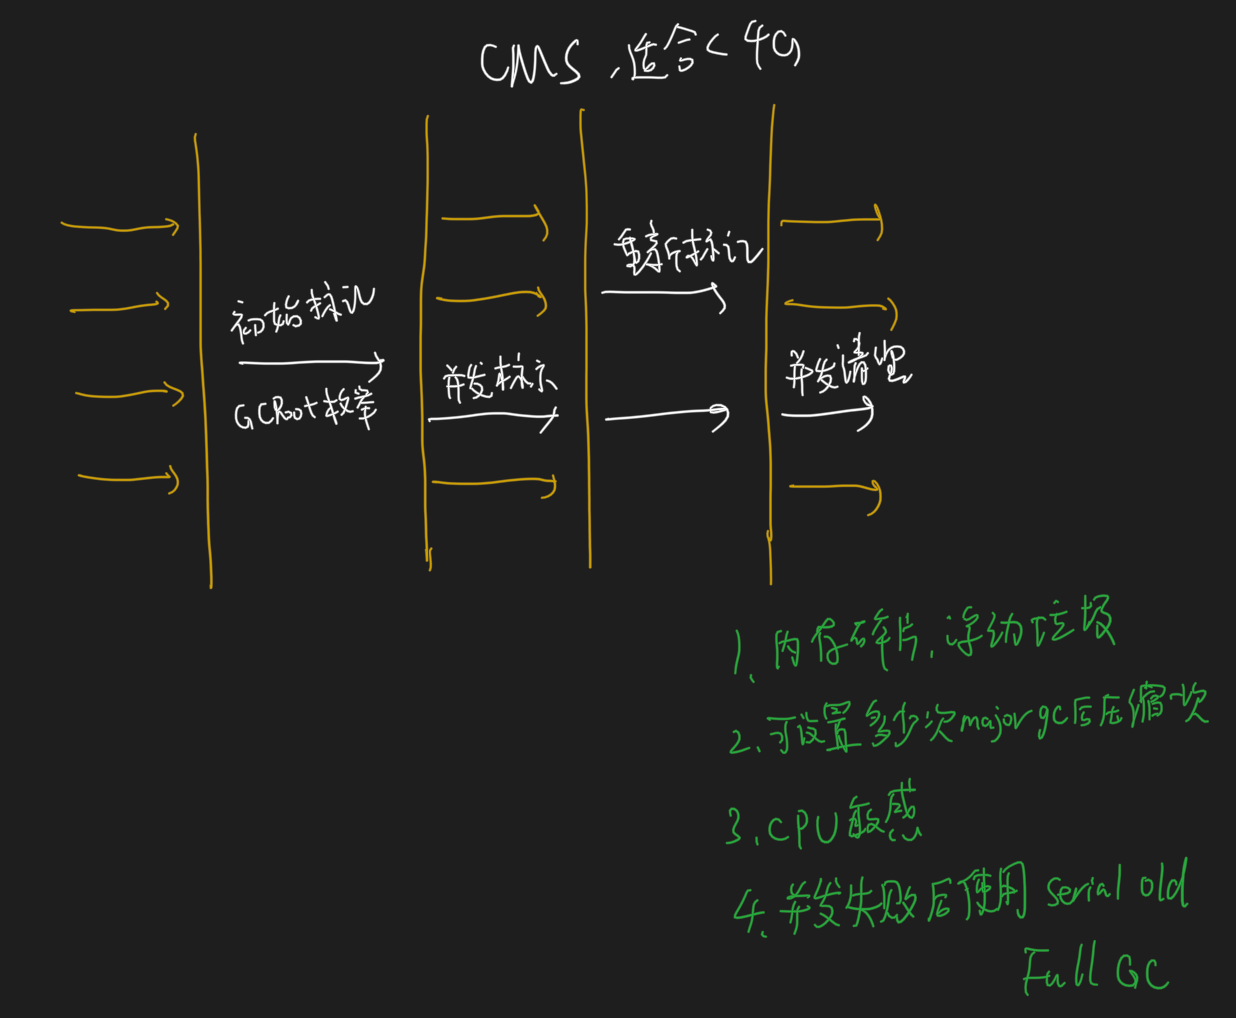 CMS，适合< 4G
初始标记
GCRoot枚举
并发标示
重新标记
并发清理
1、内存碎片，浮动垃圾
2、可设置多少次major gc后压缩一次
3、CPU敏感
4、并发失败后使用 serial old
Full GC